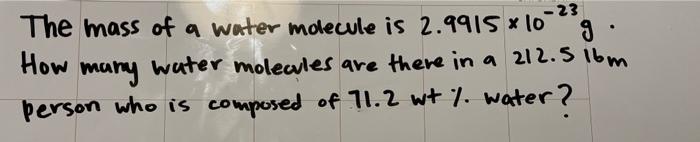 The mass of a water molecule is 2.9915 × 10⁻²³ g.
How many water molecules are there in a 212.5 lbm
person who is composed of 71.2 wt %. water?